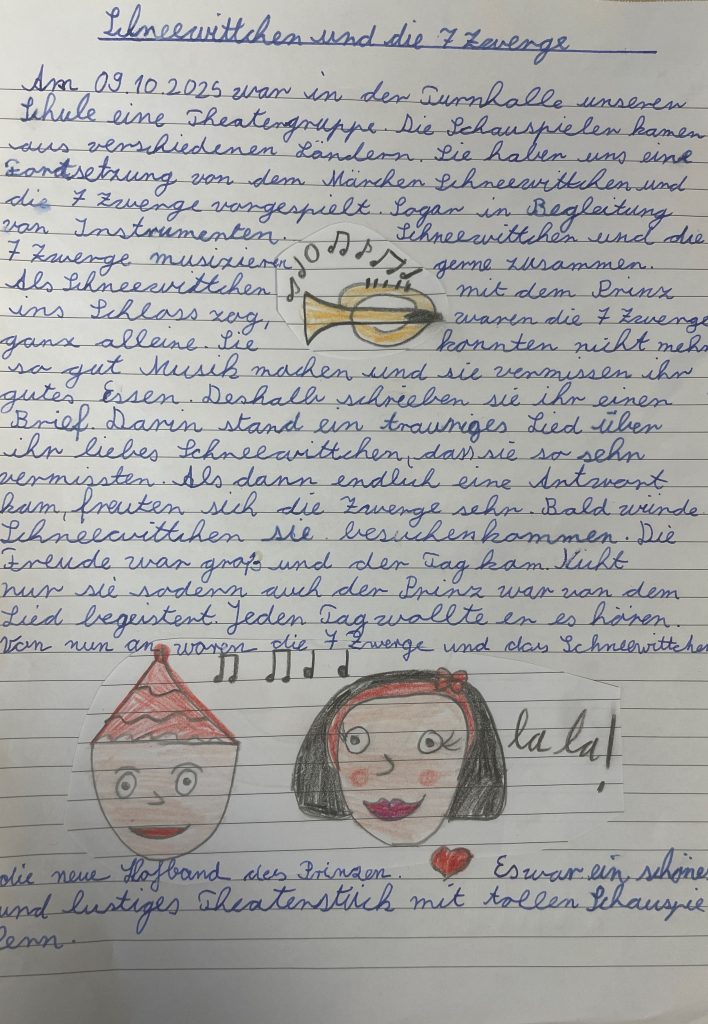 Schneewittchen und die 7 Zwerge
Am 09.10.2025 war in der Turnhalle unserer
Schule eine Theatergruppe. Die Schauspielen kamen
aus verschiedenen Ländern. Sie haben uns eine
Fortsetzung von dem Märchen Schneewittchen und
die 7 Zwerge vorgespielt. Sogar in Begleitung
von Instrumenten. Schneewittchen und die
7 Zwerge musizieren gerne zusammen.
Als Schneewittchen mit dem Prinz
ins Schloss zog, waren die 7 Zwerge
ganz alleine. Sie konnten nicht mehr
so gut Musik machen und sie vermissen ihr
gutes Essen. Deshalb schrieben sie ihr einen
Brief. Darin stand ein trauriges Lied über
ihr liebes Schneewittchen, das sie so sehr
vermissten. Als dann endlich eine Antwort
kam, freuten sich die Zwerge sehr. Bald würde
Schneewittchen sie besuchen kommen. Die
Freude war groß und der Tag kam. Nicht
nur sie sodern auch der Prinz war von dem
Lied begeistert. Jeden Tag wollte er es hören.
Von nun an waren die 7 Zwerge und das Schneewittchen
la la!
die neue Hofband des Prinzen. Es war ein schönes
und lustiges Theaterstück mit tollen Schauspie
lern.